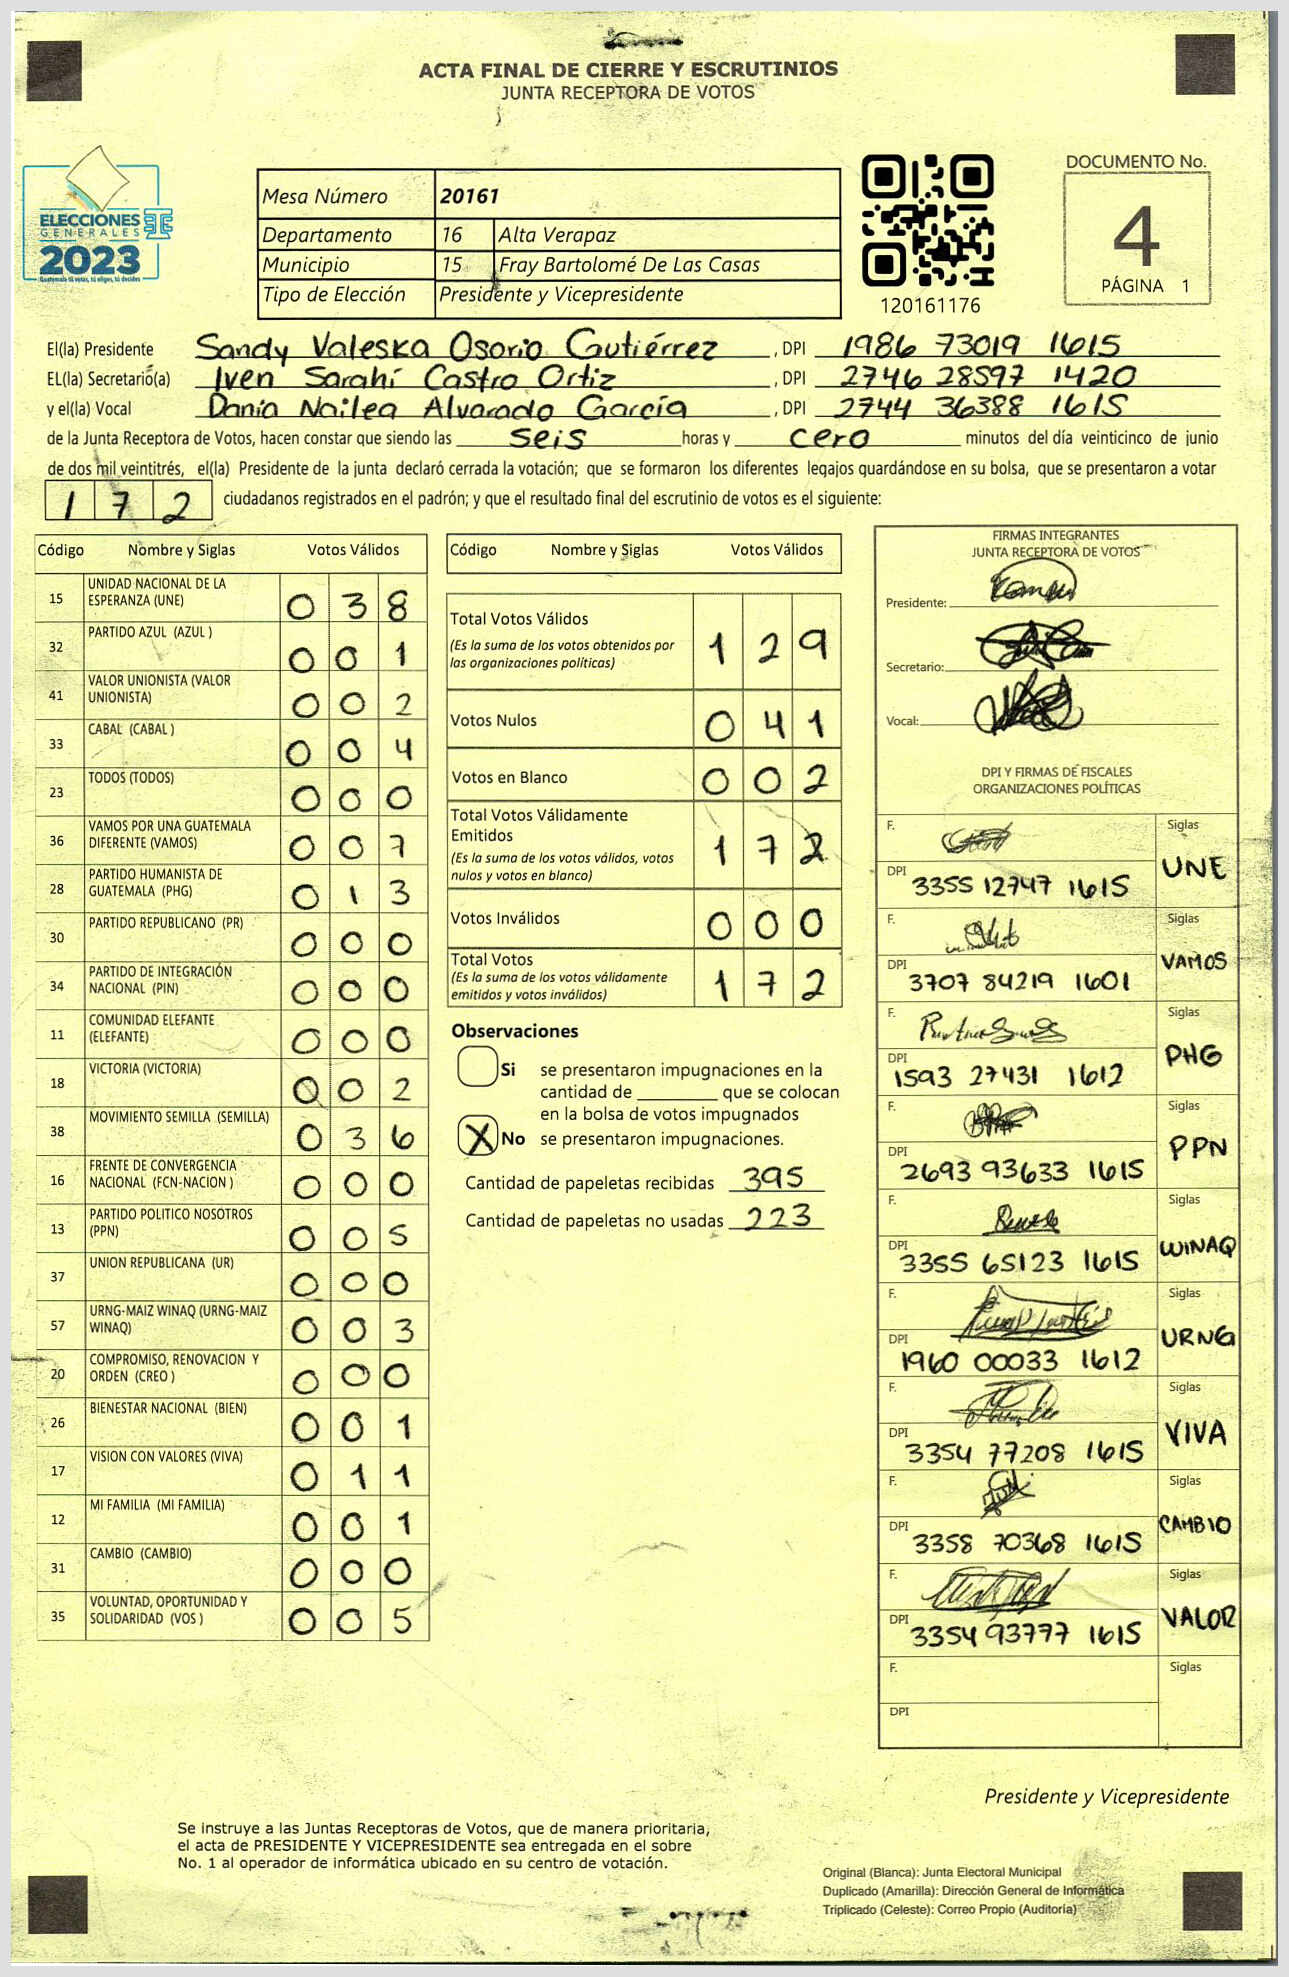 ACTA FINAL DE CIERRE Y ESCRUTINIOS
JUNTA RECEPTORA DE VOTOS
ELECCIONES
GENERALES
2023
Guatemala tú votas, tú eliges, tú decides
Mesa Número 20161
Departamento 16 Alta Verapaz
Municipio 15 Fray Bartolomé De Las Casas
Tipo de Elección Presidente y Vicepresidente
120161176
DOCUMENTO No.
4
PÁGINA 1
El(la) Presidente Sandy Valeska Osorio Gutiérrez , DPI 1986 73019 1615
EL(la) Secretario(a) Iven Sarahí Castro Ortiz , DPI 2746 28597 1420
y el(la) Vocal Dania Nailea Alvarado García , DPI 2744 36388 1615
de la Junta Receptora de Votos, hacen constar que siendo las seis horas y cero minutos del día veinticinco de junio
de dos mil veintitrés, el(la) Presidente de la junta declaró cerrada la votación; que se formaron los diferentes legajos guardándose en su bolsa, que se presentaron a votar
172 ciudadanos registrados en el padrón; y que el resultado final del escrutinio de votos es el siguiente:
Código Nombre y Siglas Votos Válidos
15 UNIDAD NACIONAL DE LA ESPERANZA (UNE) 038
32 PARTIDO AZUL (AZUL ) 001
41 VALOR UNIONISTA (VALOR UNIONISTA) 002
33 CABAL (CABAL ) 004
23 TODOS (TODOS) 000
36 VAMOS POR UNA GUATEMALA DIFERENTE (VAMOS) 007
28 PARTIDO HUMANISTA DE GUATEMALA (PHG) 013
30 PARTIDO REPUBLICANO (PR) 000
34 PARTIDO DE INTEGRACIÓN NACIONAL (PIN) 000
11 COMUNIDAD ELEFANTE (ELEFANTE) 000
18 VICTORIA (VICTORIA) 002
38 MOVIMIENTO SEMILLA (SEMILLA) 036
16 FRENTE DE CONVERGENCIA NACIONAL (FCN-NACION ) 000
13 PARTIDO POLITICO NOSOTROS (PPN) 005
37 UNION REPUBLICANA (UR) 000
57 URNG-MAIZ WINAQ (URNG-MAIZ WINAQ) 003
20 COMPROMISO, RENOVACION Y ORDEN (CREO ) 000
26 BIENESTAR NACIONAL (BIEN) 001
17 VISION CON VALORES (VIVA) 011
12 MI FAMILIA (MI FAMILIA) 001
31 CAMBIO (CAMBIO) 000
35 VOLUNTAD, OPORTUNIDAD Y SOLIDARIDAD (VOS ) 005
Código Nombre y Siglas Votos Válidos
Total Votos Válidos 129
(Es la suma de los votos obtenidos por
las organizaciones políticas)
Votos Nulos 041
Votos en Blanco 002
Total Votos Válidamente
Emitidos 172
(Es la suma de los votos válidos, votos
nulos y votos en blanco)
Votos Inválidos 000
Total Votos 172
(Es la suma de los votos válidamente
emitidos y votos inválidos)
Observaciones
Si se presentaron impugnaciones en la
cantidad de ________ que se colocan
en la bolsa de votos impugnados
X No se presentaron impugnaciones.
Cantidad de papeletas recibidas 395
Cantidad de papeletas no usadas 223
FIRMAS INTEGRANTES
JUNTA RECEPTORA DE VOTOS
Presidente:
Secretario:
Vocal:
DPI Y FIRMAS DE FISCALES
ORGANIZACIONES POLÍTICAS
F. Siglas
DPI 3355 12747 1615 UNE
F. Siglas
DPI 3707 84219 1601 VAMOS
F. Siglas
DPI 1593 27431 1612 PHG
F. Siglas
DPI 2693 93633 1615 PPN
F. Siglas
DPI 3355 65123 1615 WINAQ
F. Siglas
DPI 1960 00033 1612 URNG
F. Siglas
DPI 3354 77208 1615 VIVA
F. Siglas
DPI 3358 70368 1615 CAMBIO
F. Siglas
DPI 3354 93777 1615 VALOR
F. Siglas
DPI
Presidente y Vicepresidente
Se instruye a las Juntas Receptoras de Votos, que de manera prioritaria,
el acta de PRESIDENTE Y VICEPRESIDENTE sea entregada en el sobre
No. 1 al operador de informática ubicado en su centro de votación.
Original (Blanca): Junta Electoral Municipal
Duplicado (Amarilla): Dirección General de Informática
Triplicado (Celeste): Correo Propio (Auditoría)